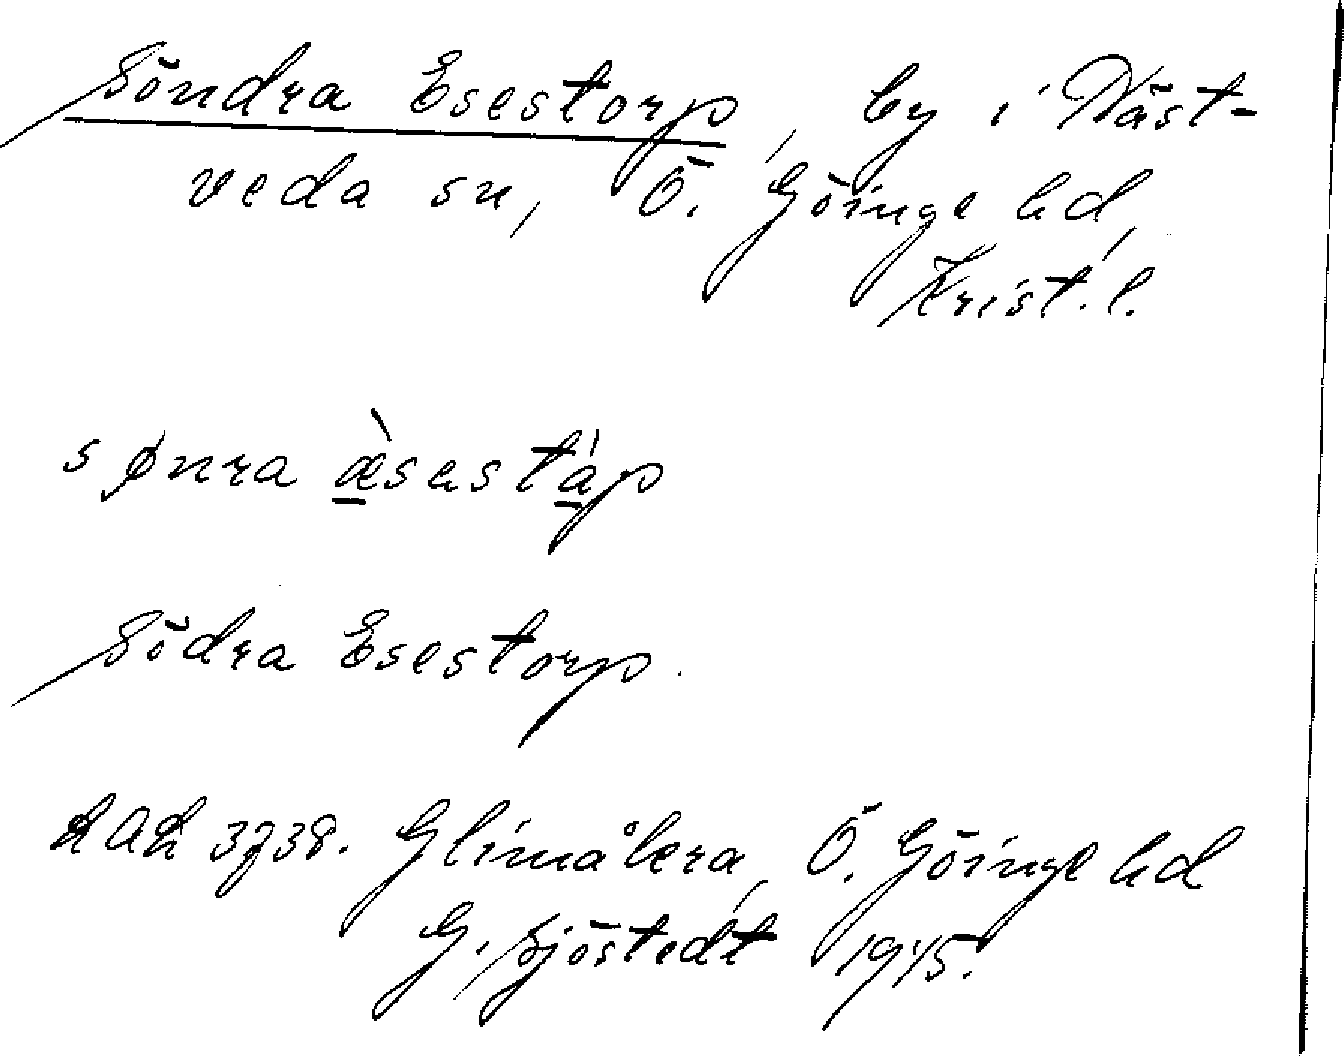 Söndra Esestorp, by i Näst-
veda sn, Ö. Göinge hd,
Krist. l.
sønra æ̀sastáp
Södra Esestorp.
LAL 3738. Glimåkra, Ö. Göinge hd
G. Sjöstedt 1945.